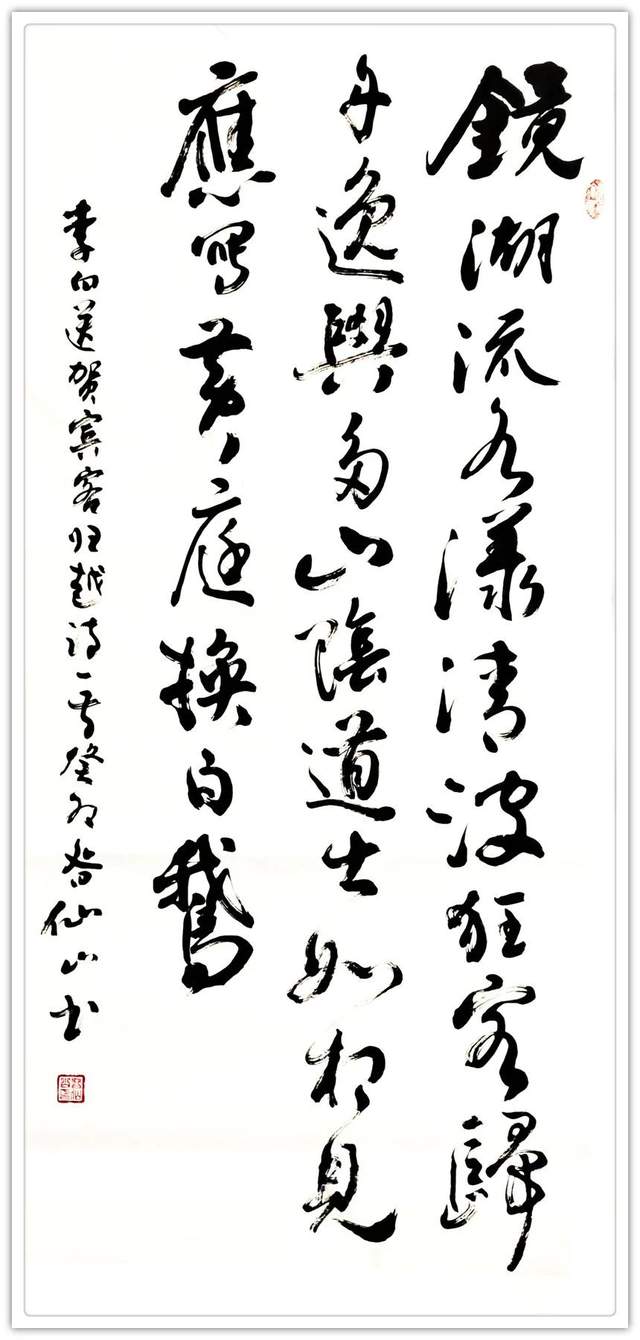 鏡湖流水漾清波狂客歸
舟逸興多山陰道士如相見
應寫黃庭換白鵝
李白送贺宾客归越诗一首癸卯仙山书